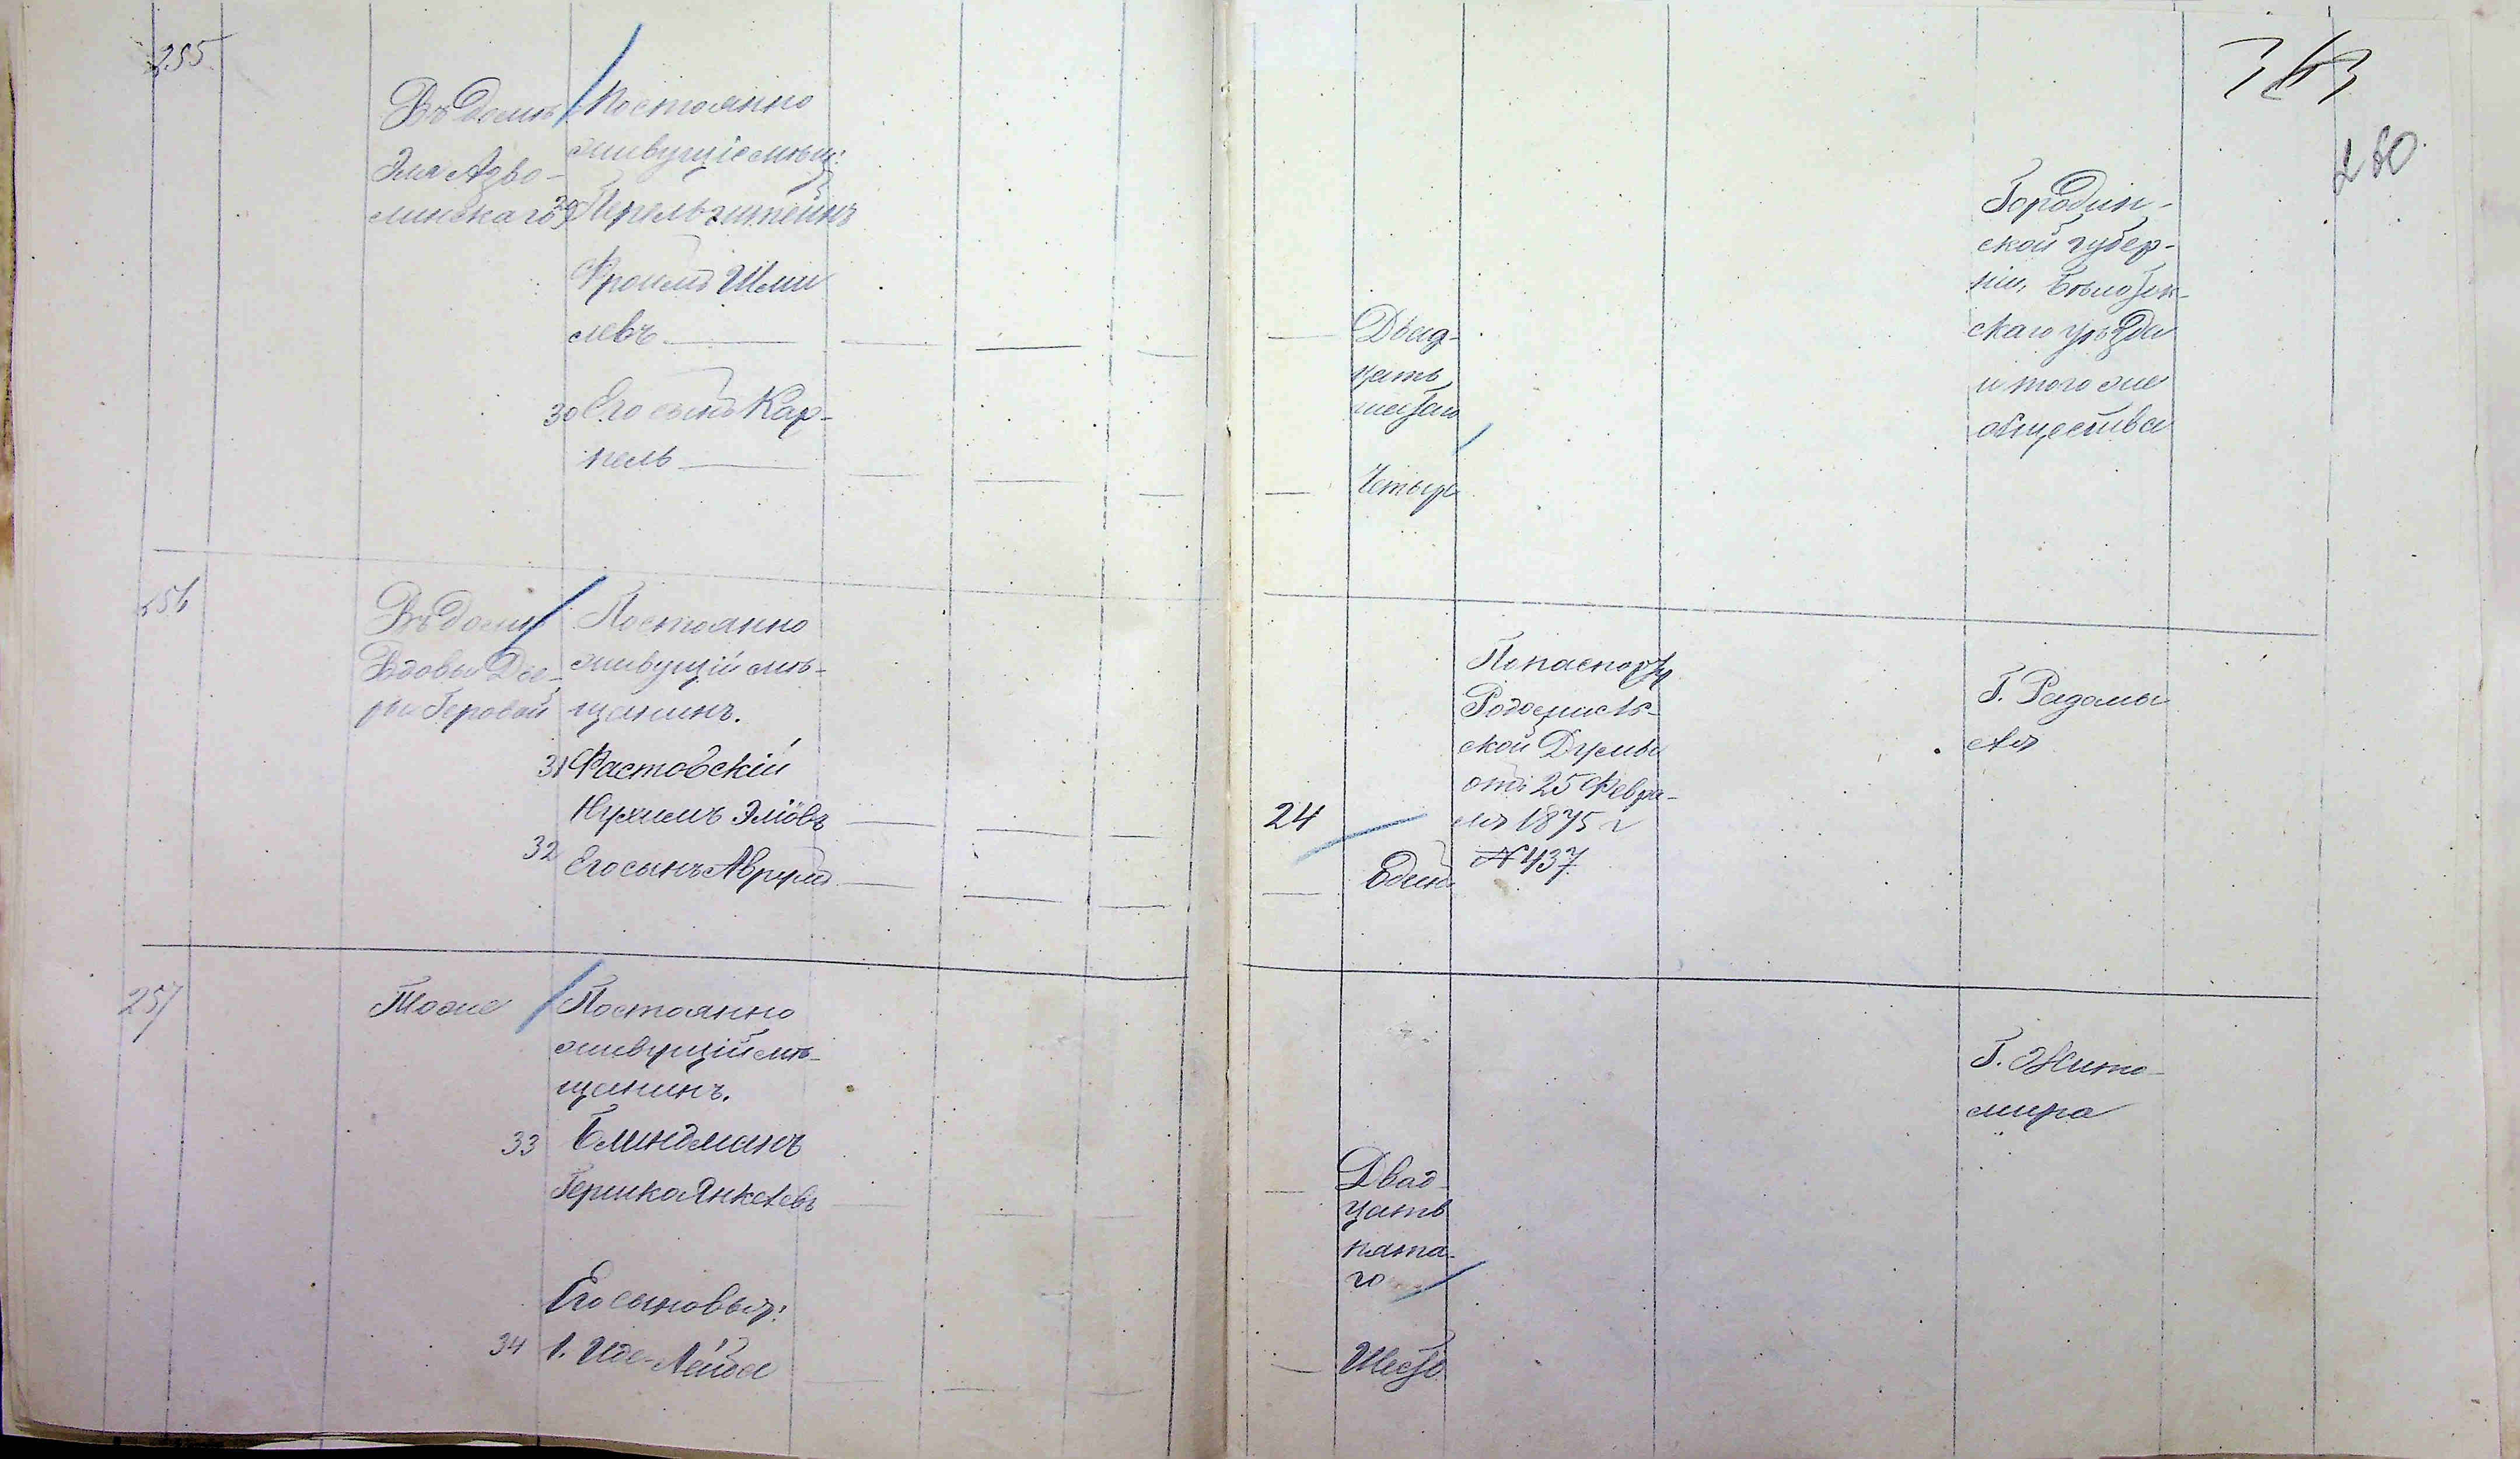 255
Въ домѣ
Эля Азво-
линскаго
Постоянно
живущіе мѣщ:
29 Перельштейнъ
Фроимъ Шми
левъ
30 Его сынъ Кар-
пель
Двад-
цать
шестаго
Четыре
Городин-
ской губер-
ніи, Бѣлосток-
скаго уѣзда
и того же
общества
363
260
256
Въ домѣ
Вдовы До-
ры Геровой
Постоянно
живущій мѣ-
щанинъ.
31 Фастовскій
Нухимъ Эліовъ
32 Его сынъ Аврумъ
24
Единъ
По паспорту
Родомысль-
ской Думы
отъ 25 Февра-
ля 1875 г
№ 437
Г. Радомы
сля
257
Тоже
Постоянно
живущій мѣ-
щанинъ.
33 Блиндманъ
Гершко Янкелевъ
Его сыновья:
34 1. Иде-Лейба
Двад-
цать
пята-
го
Шесть
Г. Жито-
мира